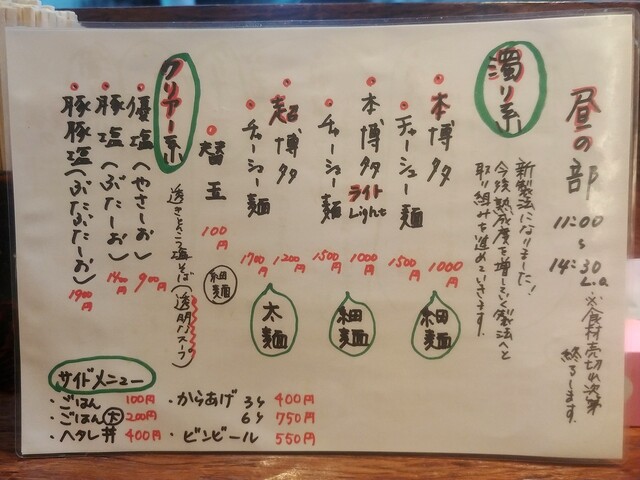 昼の部
11:00
〜
14:30
L.o
※食材売切れ次第
終了します。
濁り系
新製法になりました！
今後熟成度を増していく製法へと
取り組みを進めていきます。
本博多 1000円
チャーシュー麺 1500円
細麺
本博多ライト Light 1000円
チャーシュー麺 1500円
細麺
超博多 1200円
チャーシュー麺 1700円
太麺
替玉 100円
細麺
クリアー系
透きとおった塩そば(透明スープ)
優塩(やさしお) 900円
豚塩(ぶたしお) 1400円
豚豚塩(ぶたぶたしお) 1900円
サイドメニュー
・ごはん 100円
・ごはん大 200円
・ヘタレ丼 400円
・からあげ 3ケ 400円
6ケ 750円
・ビンビール 550円